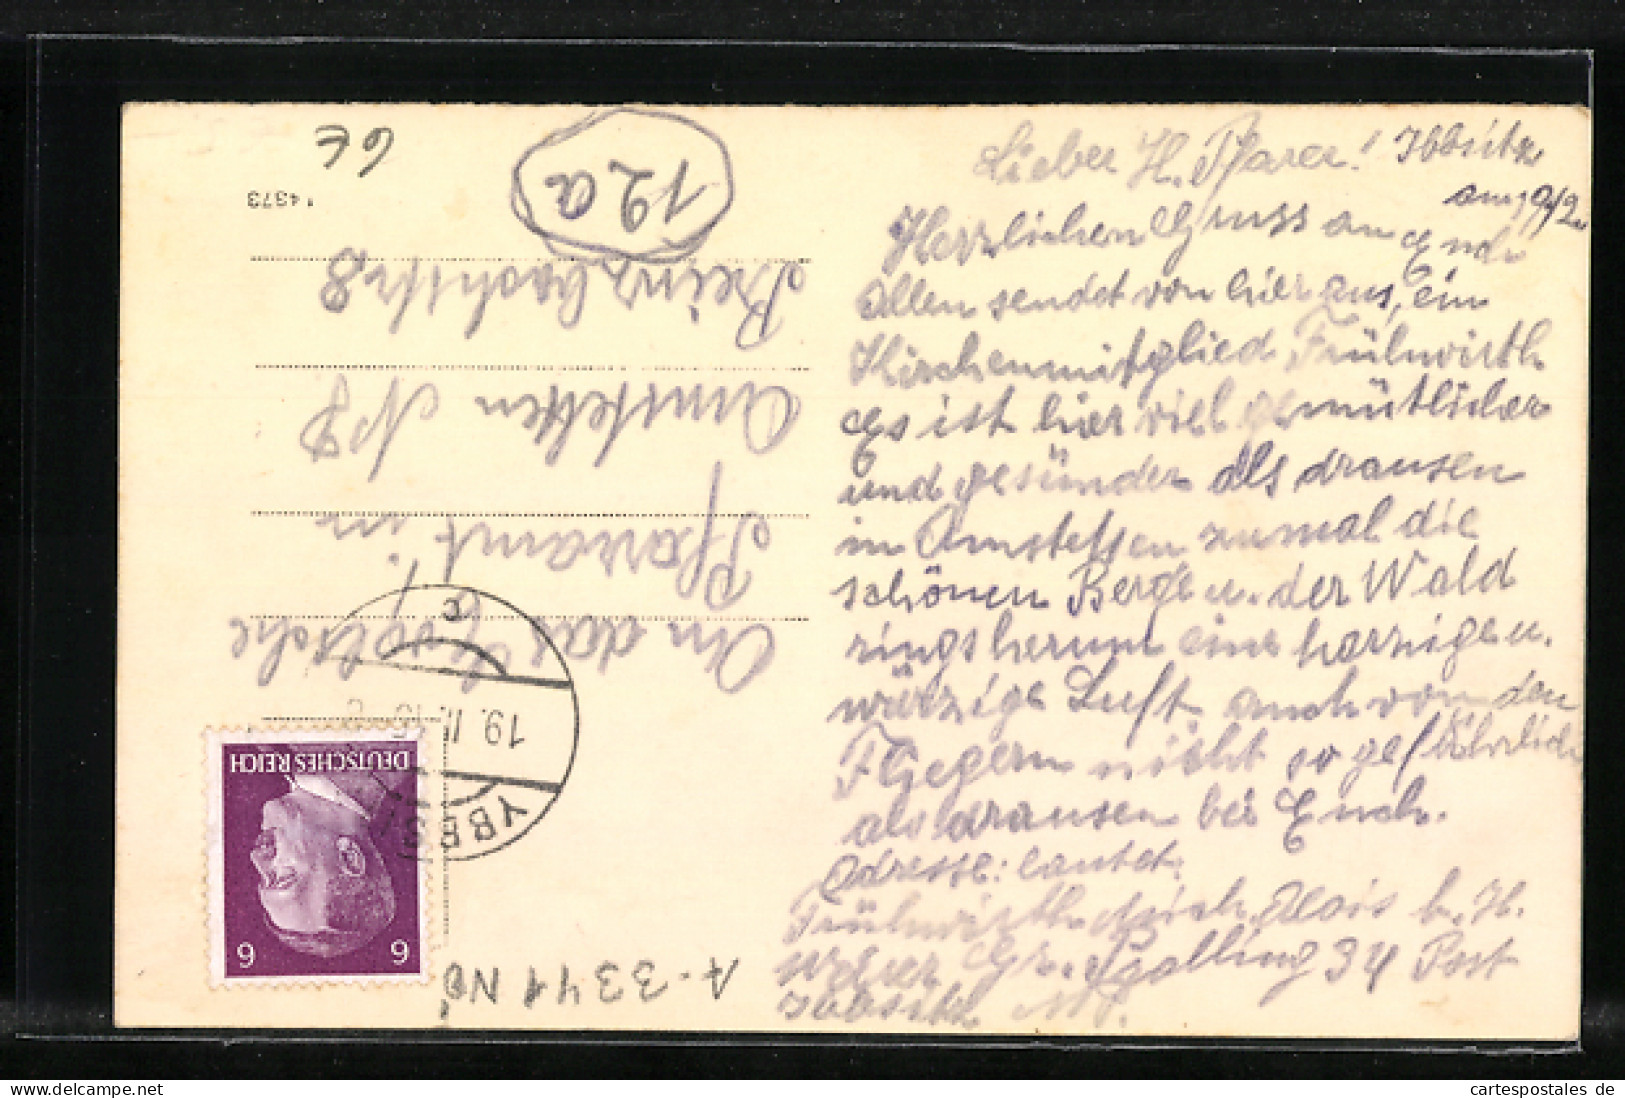 Lieber H. Pfarer! Ibbsitz
am 19/2.
Herzlichen Gruss an Euch
Allen sendet von hier aus, ein
Kirchenmitglied Frühwirth
Es ist hier viel gemütlicher
und gesünder als drausen
in Amstetten zumal die
schönen Berge u. der Wald
ringsherum eine harzige u.
würzige Luft auch von den
Fliegern nicht so gefährlich
als drausen bei Euch.
Adresse: lautet:
Frühwirth Alois b. H.
Weber Gr. 34 Post
Ibbsitz ND.
6€
12a
* 4373
An das Evgl.
Pfarramt in
Amstetten ND
Preinsbachstr 8
YBBSI
19. II. 45
c
DEUTSCHES REICH
6 6
A-3341 NÖ
cartespostales de